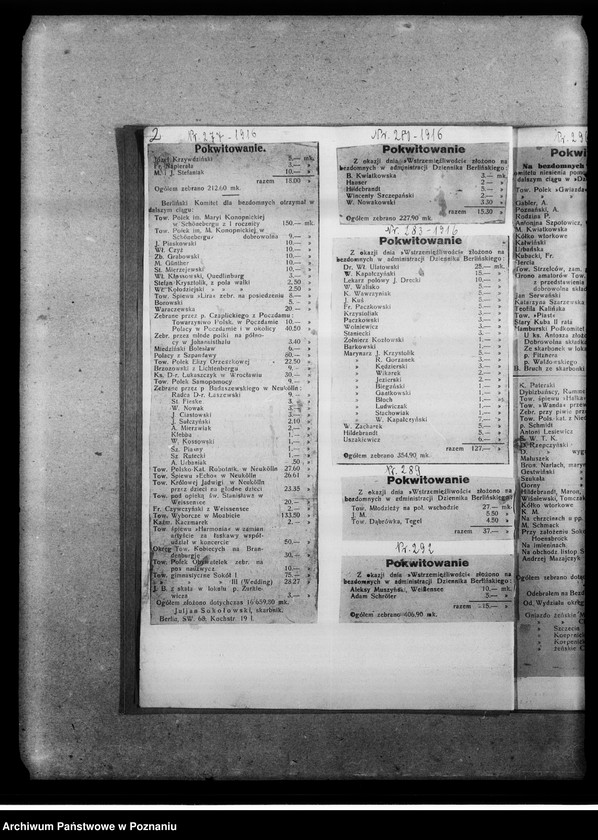 2
Nr. 277-1916
Pokwitowanie.
Józef Krzywdziński 5.— mk.
Fr. Napierała 3.— »
M. i J. Stefaniak 10.— »
razem 18.00 »
Ogółem zebrano 212.60 mk.
Berliński Komitet dla bezdomnych otrzymał w
dalszym ciągu:
Tow. Polek im. Maryi Konopnickiej
w Schöneberg z I rocznicy 150.— mk.
Tow. Polek im. M. Konopnickiej w
Schönebergu dobrowolna 9.— »
J. Pisakowski 10.— »
Wł. Czyż 10.— »
Zb. Grabowski 10.— »
M. Günther 10.— »
St. Mierzejewski 10.— »
Wł. Klanowski, Quedlinburg 3.— »
Stefan Krysztofik, z pola walki 2.50 »
Wł. Kołodziejski » » » 2.50 »
Tow. Śpiewu »Lira« zebr. na posiedzeniu 8.— »
Borowski 5.— »
Waraczewska 20 — »
Zebrane przez p. Czaplickiego z Poczdamu
Towarzystwo Polsk. w Poczdamie 10.— »
Polacy w Poczdamie i w okolicy 40.50 »
Zebr. przez młode polki na północy
w Johannisthalu 3.40 »
Miedziński Bolesław 6.— »
Polacy z Szpandawy 60.— »
Tow. Polek Elizy Orzeszkowej 22.50 »
Brzozowski z Lichtenbergu 9.— »
Ks. D-r. Łukaszczyk w Wrocławiu 30.— »
Tow. Polek Samopomocy 9.— »
Zebrane przez p. Baduszewskiego w Neukölln:
Radca D-r. Laszewski 9.— »
St. Fieske 3.
W. Nowak 3.— »
J. Ciastowski 3.— »
J. Sulczyński 2.10 »
A. Mierzwiak 2.— »
Klebba 1.— »
W. Kossowski 1.— »
Sz. Piawny 1.— »
Sz Ratecki 1.— »
A. Urbaniak .50 »
Tow. Polsko Kat. Robotnik. w Neukölln 27.60 »
Tow. Śpiewu »Echo« w Neukölln 26.61 »
Tow. Królowej Jadwigi w Neukölln
przez dzieci na głodne dzieci 23.35 »
Tow. pod opieką św. Stanisława w
Weissensee 20.— »
Fr. Czywczyński z Weissensee 2.— »
Tow. Wyborcze w Moabicie 133.50 »
Kazim. Kaczmarek 2.— »
Tow. śpiewu »Harmonia« w zamian
artyście za łaskawy współudział
w koncercie 50.— »
Okręg Tow. Kobiecych na Brandenburgię
30.— »
Tow. Polek Obywatelek zebr. na
pos nadzwycz. 10.— »
Tow. gimnastyczne Sokół I 75.— »
» » » III (Wedding) 28.27 »
J. B. z skata w lokalu p. Zienkiewicza
3.— »
Ogółem złożono dotychczas 16 659.80 mk.
Juljan Sokołowski, skarbnik.
Berlin, SW. 68, Kochstr 19 I.
Nr. 281-1916
Pokwitowanie
Z okazji dnia »Wstrzemięźliwości« złożono na
bezdomnych w administracji Dziennika Berlińskiego:
B. Kwiatkowska 3.— mk.
Hauser 2.— »
Hildebrandt 5.— »
Wincenty Szczepański 2.— »
W. Nowakowski 3.30 »
razem 15.30 »
Ogółem zebrano 227.90 mk.
Nr. 283-1916
Pokwitowanie
Z okazji dnia »Wstrzemięźliwości« złożono na
bezdomnych w administracji Dziennika Berlińskiego:
Dr. Wł. Ulatowski 25.— mk.
W. Kapałczyński 15.— »
Lekarz polowy J. Drecki 10.— »
W. Walisko 5.— »
K. Wawrzyniak 5.— »
J. Kuś 5.— »
Fr. Paczkowski 3.— »
Krzysztofiak 3.— »
Paczkowski 5.— »
Woźniewicz 3.— »
Stasiecki 1.— »
Żołnierz Kozłowski 1.— »
Barkowski 1.— »
Marynarz J. Krzysztofik 5.— »
» R. Gorzanek 3.— »
» Kędzierski 3.— »
» Wikarek 3.— »
» Jezierski 2.— »
» Biegański 1.— »
» Gasłkowski 1.— »
» Bloch 1.— »
» Ludwiczak 1.— »
» Stachowiak 1.— »
» W. Kapałczyński 1.— »
W. Zacharek 5.— »
Hildebrandt 5.— »
Uszakiewicz 6.— »
razem 127.— »
Ogółem zebrano 354.90 mk.
Nr. 289
Pokwitowanie
Z okazji dnia »Wstrzemięźliwości« złożono na
bezdomnych w administracji Dziennika Berlińskiego:
Tow. Młodzieży na poł. wschodzie 27 — mk.
J. M. 5.50 »
Tow. Dąbrówka, Tegel 4.50 »
razem 37.— »
Nr. 292
Pokwitowanie
Z okazji dnia »Wstrzemięźliwości« złożono na
bezdomnych w administracji Dziennika Berlińskiego:
Aleksy Muszyński, Weißensee 10.— mk.
Adam Schröter 5.— »
razem 15.— »
Ogółem zebrano 406.90 mk.
Nr. 29
Pokwi
Na bezdomnych
mitetu niesienia pomo
dalszym ciągu w »Dz
Tow. Polek »Gwiazda«
Gabler, A.
Poznański, A.
Rodzina P.
Antonina Szpotowicz,
M. Kwiatkowska
Kółko wtorkowe
Kaźwiński
Urbańska
Kubacki, Fr.
Tercia
Tow. Strzelców, zam.
Grono amatorów Tow.
z przedstawienia
dobrowolna skład
Jan Serwański
Katarzyna Szarzewska
Teofila Kalińska
Tow. »Piast«
Stary Kuba II rata
Hamburski Podkomitet
U ks. Antosza złożo
Dobrowolna składka
Ze skarbonek w loka
p. Pfitznera
p. Waldowskiego
B. Bruch ze skarbonki
K. Paterski
Dybizbańscy, Rumme
Tow. śpiewu »Halka«
Tow. »Wanda« przew
Zebr. przy piwie prze
p. Schmidt
Antoni Lesiewicz
S. W. T. K.
D. Rzepczyński
D. » wyg
Maluszek
Bron. Narlach, maryn
Gestwiński
Szukała
Górny
Hildebrandt, Maron,
Wiśniewski, Tomczak
Kółko wtorkowe
K. M.
Na chrzcinach u pp.
M. Schmack
Przy założeniu Sokoł
Hoensbroek
Na imieninach
Na obchodz. listop. S
Andrzej Mazajczyk
Ogółem zebrano dotąd
Odebrałem na Bezd
Od Wydziału okręg
Gniazda żeńskie
Szczecin
Korpenick
Korpenick
żeńskie C
Archiwum Państwowe w Poznaniu